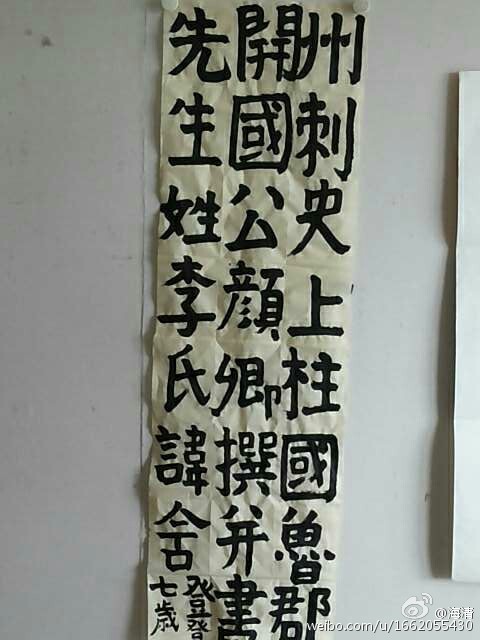 州刺史上柱國魯郡
開國公顏卿撰并書
先生姓李氏諱含
登
七歲
海清
weibo.com/u/1662055430